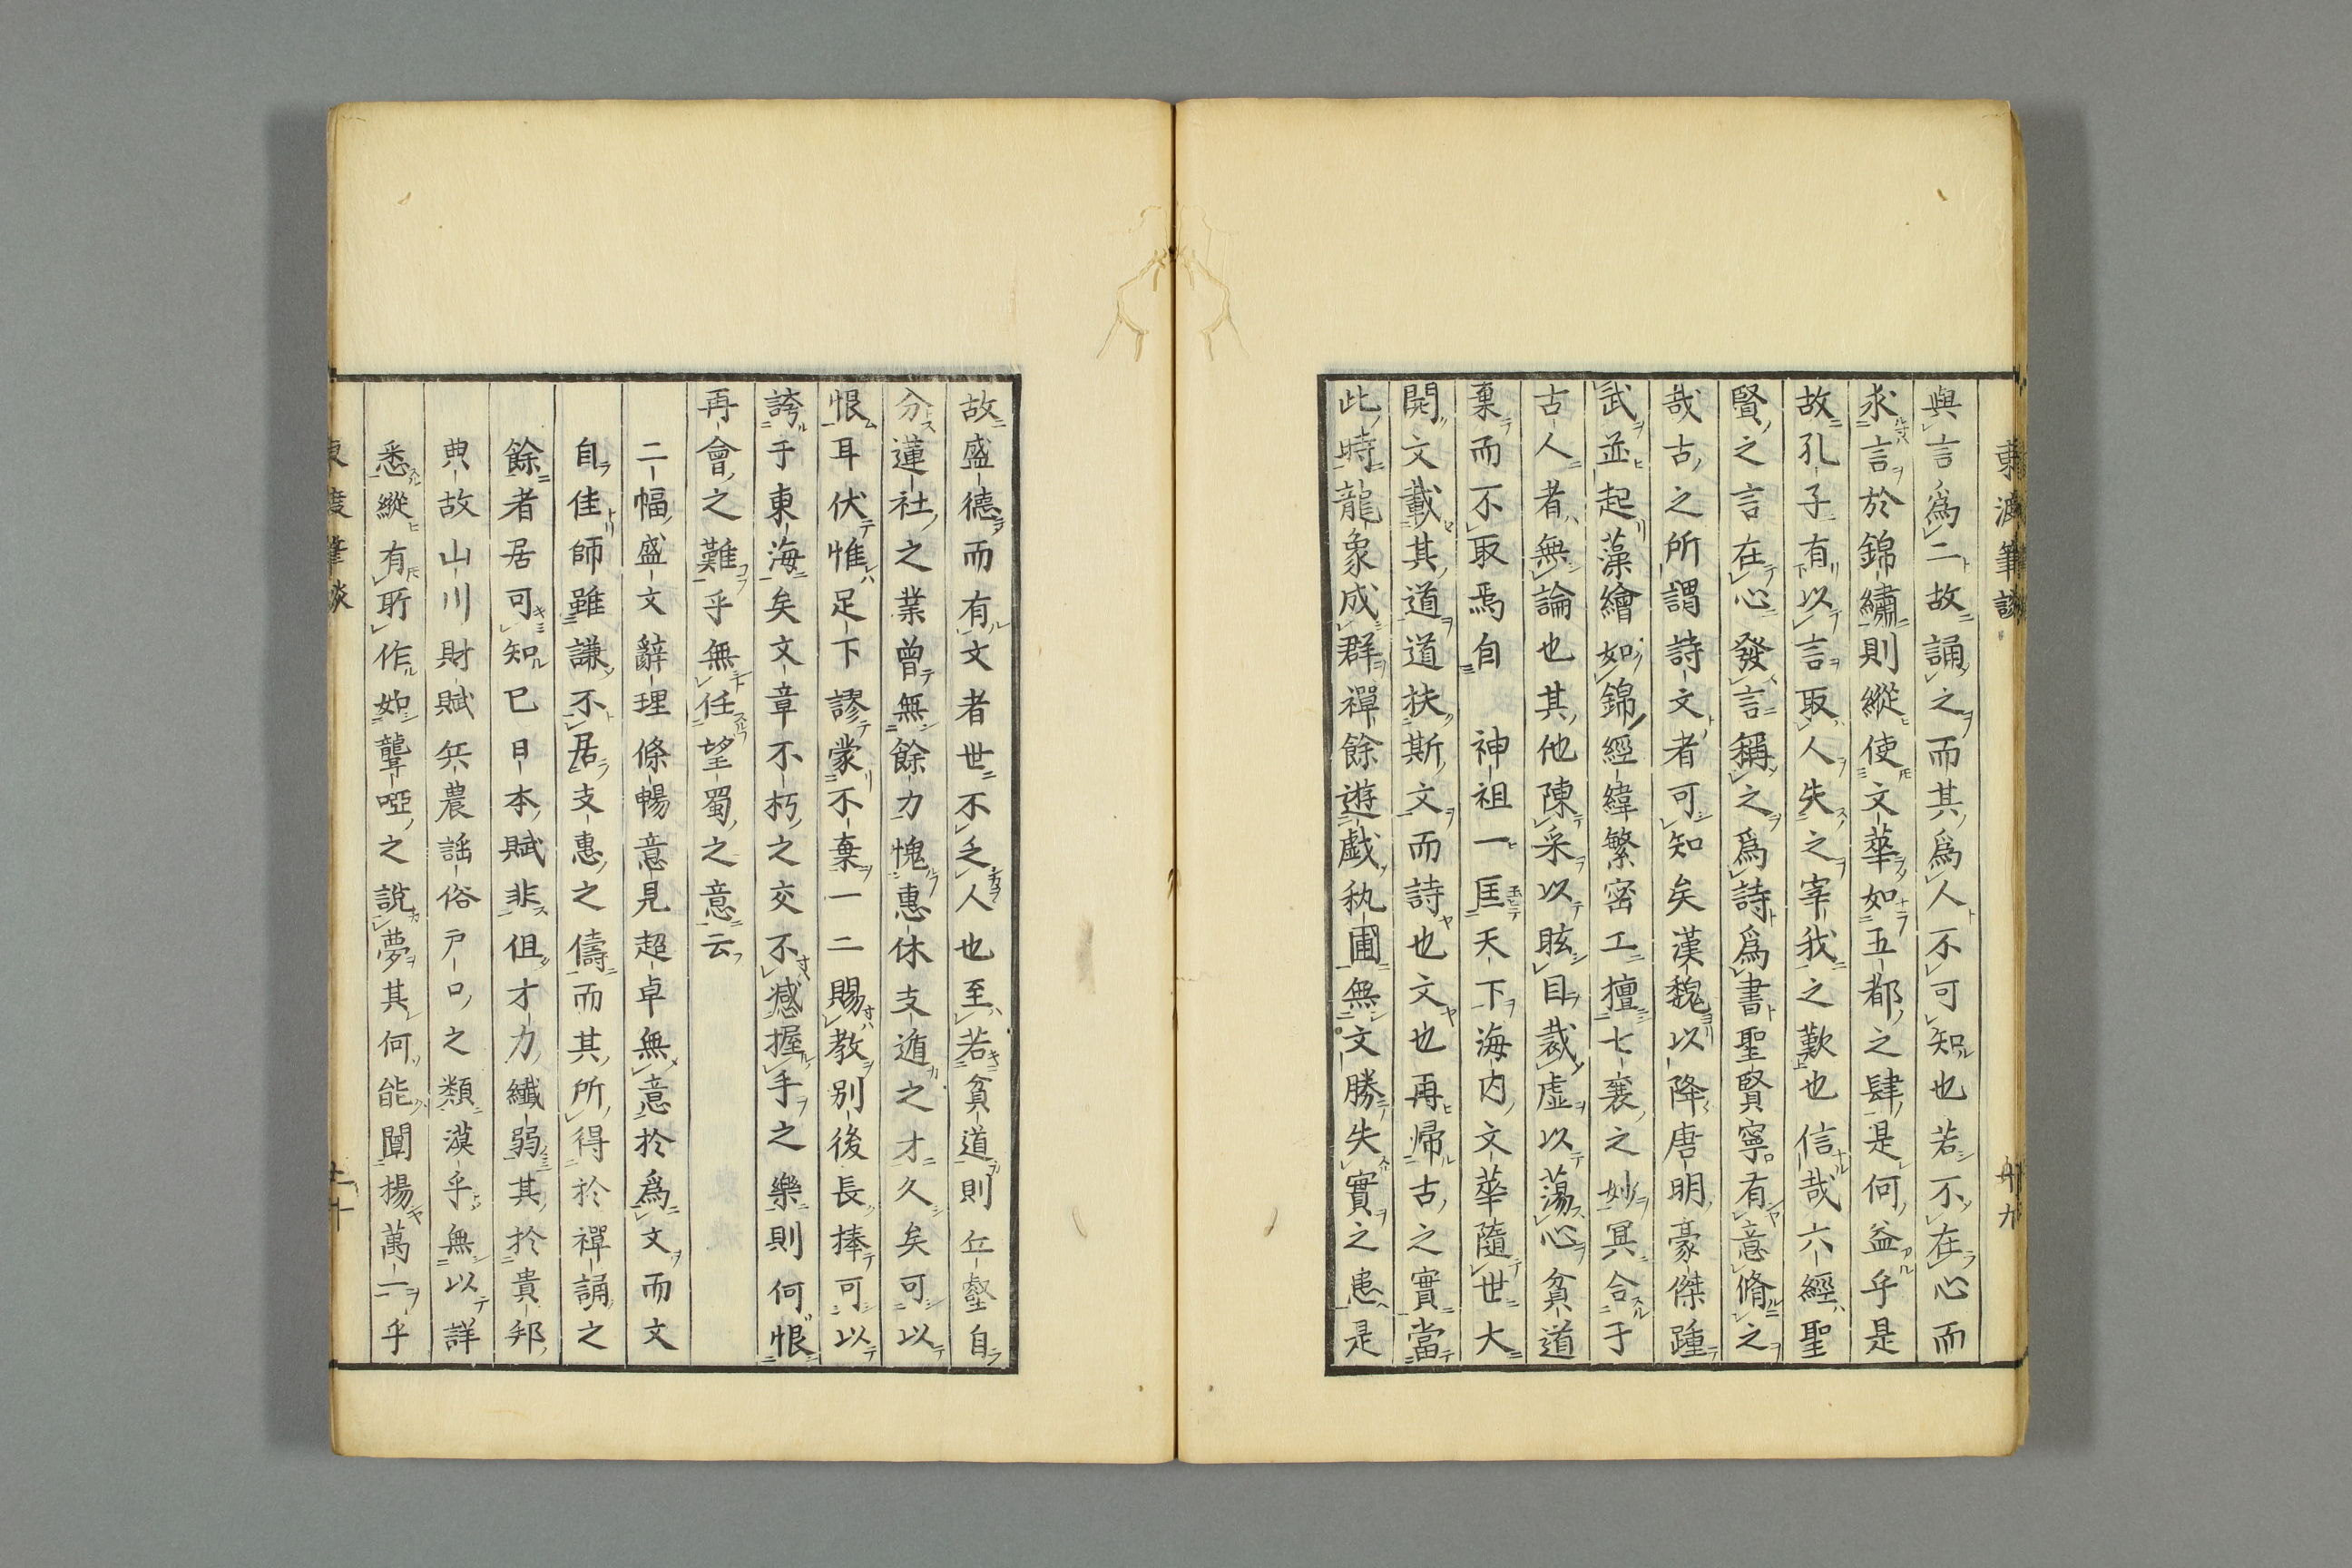 東渡筆談 卅九
與言爲二故誦之而其爲人不可知也若不在心而
求言於錦繡則縱使文華如五都之肆是何益乎是
故孔子有以言取人失之宰我之歎也信哉六經聖
賢之言在心發言稱之爲詩爲書聖賢寧有意脩之
哉古之所謂詩文者可知矣漢魏以降唐明豪傑踵
武並起藻繪如錦經緯繁密工擅七襄之妙冥合于
古人者無論也其他陳采以眩目裁虛以蕩心貧道
棄而不取焉自 神祖一匡天下海内文華隨世大
開文載其道道扶斯文而詩也文也再帰古之實當
此時龍象成群禪餘遊戯秇圃無文勝失實之患是
故盛德而有文者世不乏人也至若貧道則丘壑自
分蓮社之業曾無餘力愧惠休支遁之才久矣可以
恨耳伏惟足下謬蒙不棄一二賜教别後長捧可以
誇于東海矣文章不朽之交不憾握手之樂則何恨
再會之難乎無任望蜀之意云
二幅盛文辭理條暢意見超卓無意於爲文而文
自佳師雖謙不居支惠之儔而其所得於禪誦之
餘者居可知已日本賦非伹才力纖弱其於貴邦
典故山川財賦兵農謡俗戸口之類漠乎無以詳
悉縱有所作如聾啞之說夢其何能闡揚萬一乎
東渡筆談